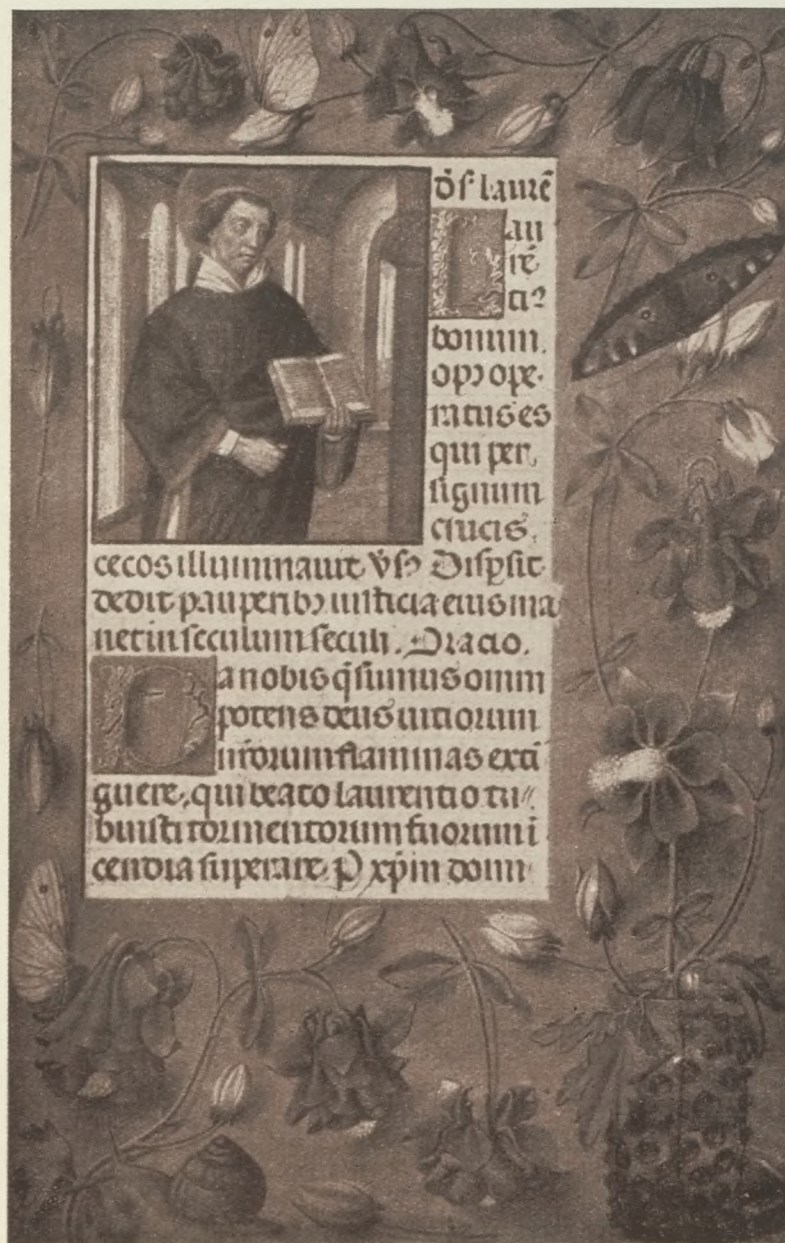 d̄s laurē
Lau
rē
ciꝰ
bonum.
opꝰ ope
ratus es
qui per
signum
crucis.
cecos illuminauit v̄sꝰ Disp̱sit
dedit pauperibꝫ iusticia eius ma
net in seculum seculi. Oracio.
Da nobis q̄sumus omni
potens deus uitiorum
nr̄orum flammas exti
guere, qui beato laurentio tri〃
buisti tormentorum suorum ī
cendia superare. P xp̄m domi